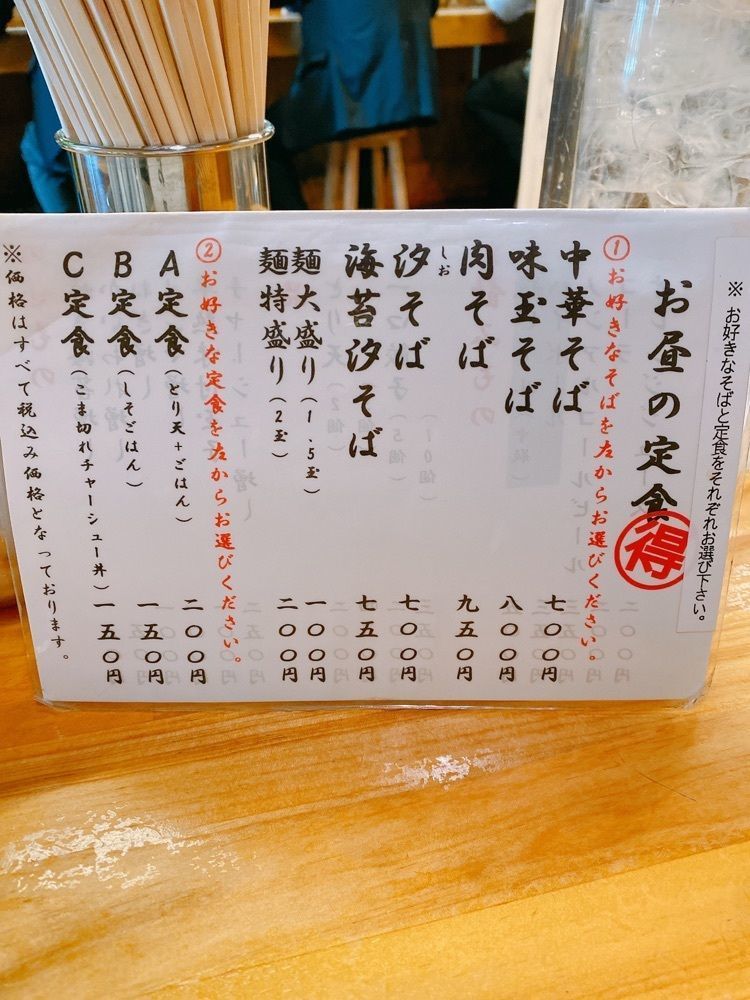 ※ お好きなそばと定食をそれぞれお選び下さい。
お昼の定食
得
①お好きなそばを左からお選びください。
中華そば 七〇〇円
味玉そば 八〇〇円
肉そば 九五〇円
しお
汐そば 七〇〇円
海苔汐そば 七五〇円
麺大盛り(1.5玉) 一〇〇円
麺特盛り(2玉) 二〇〇円
②お好きな定食を左からお選びください。
A定食(とり天+ごはん) 二〇〇円
B定食(しそごはん) 一五〇円
C定食(こま切れチャーシュー丼) 一五〇円
※価格はすべて税込み価格となっております。